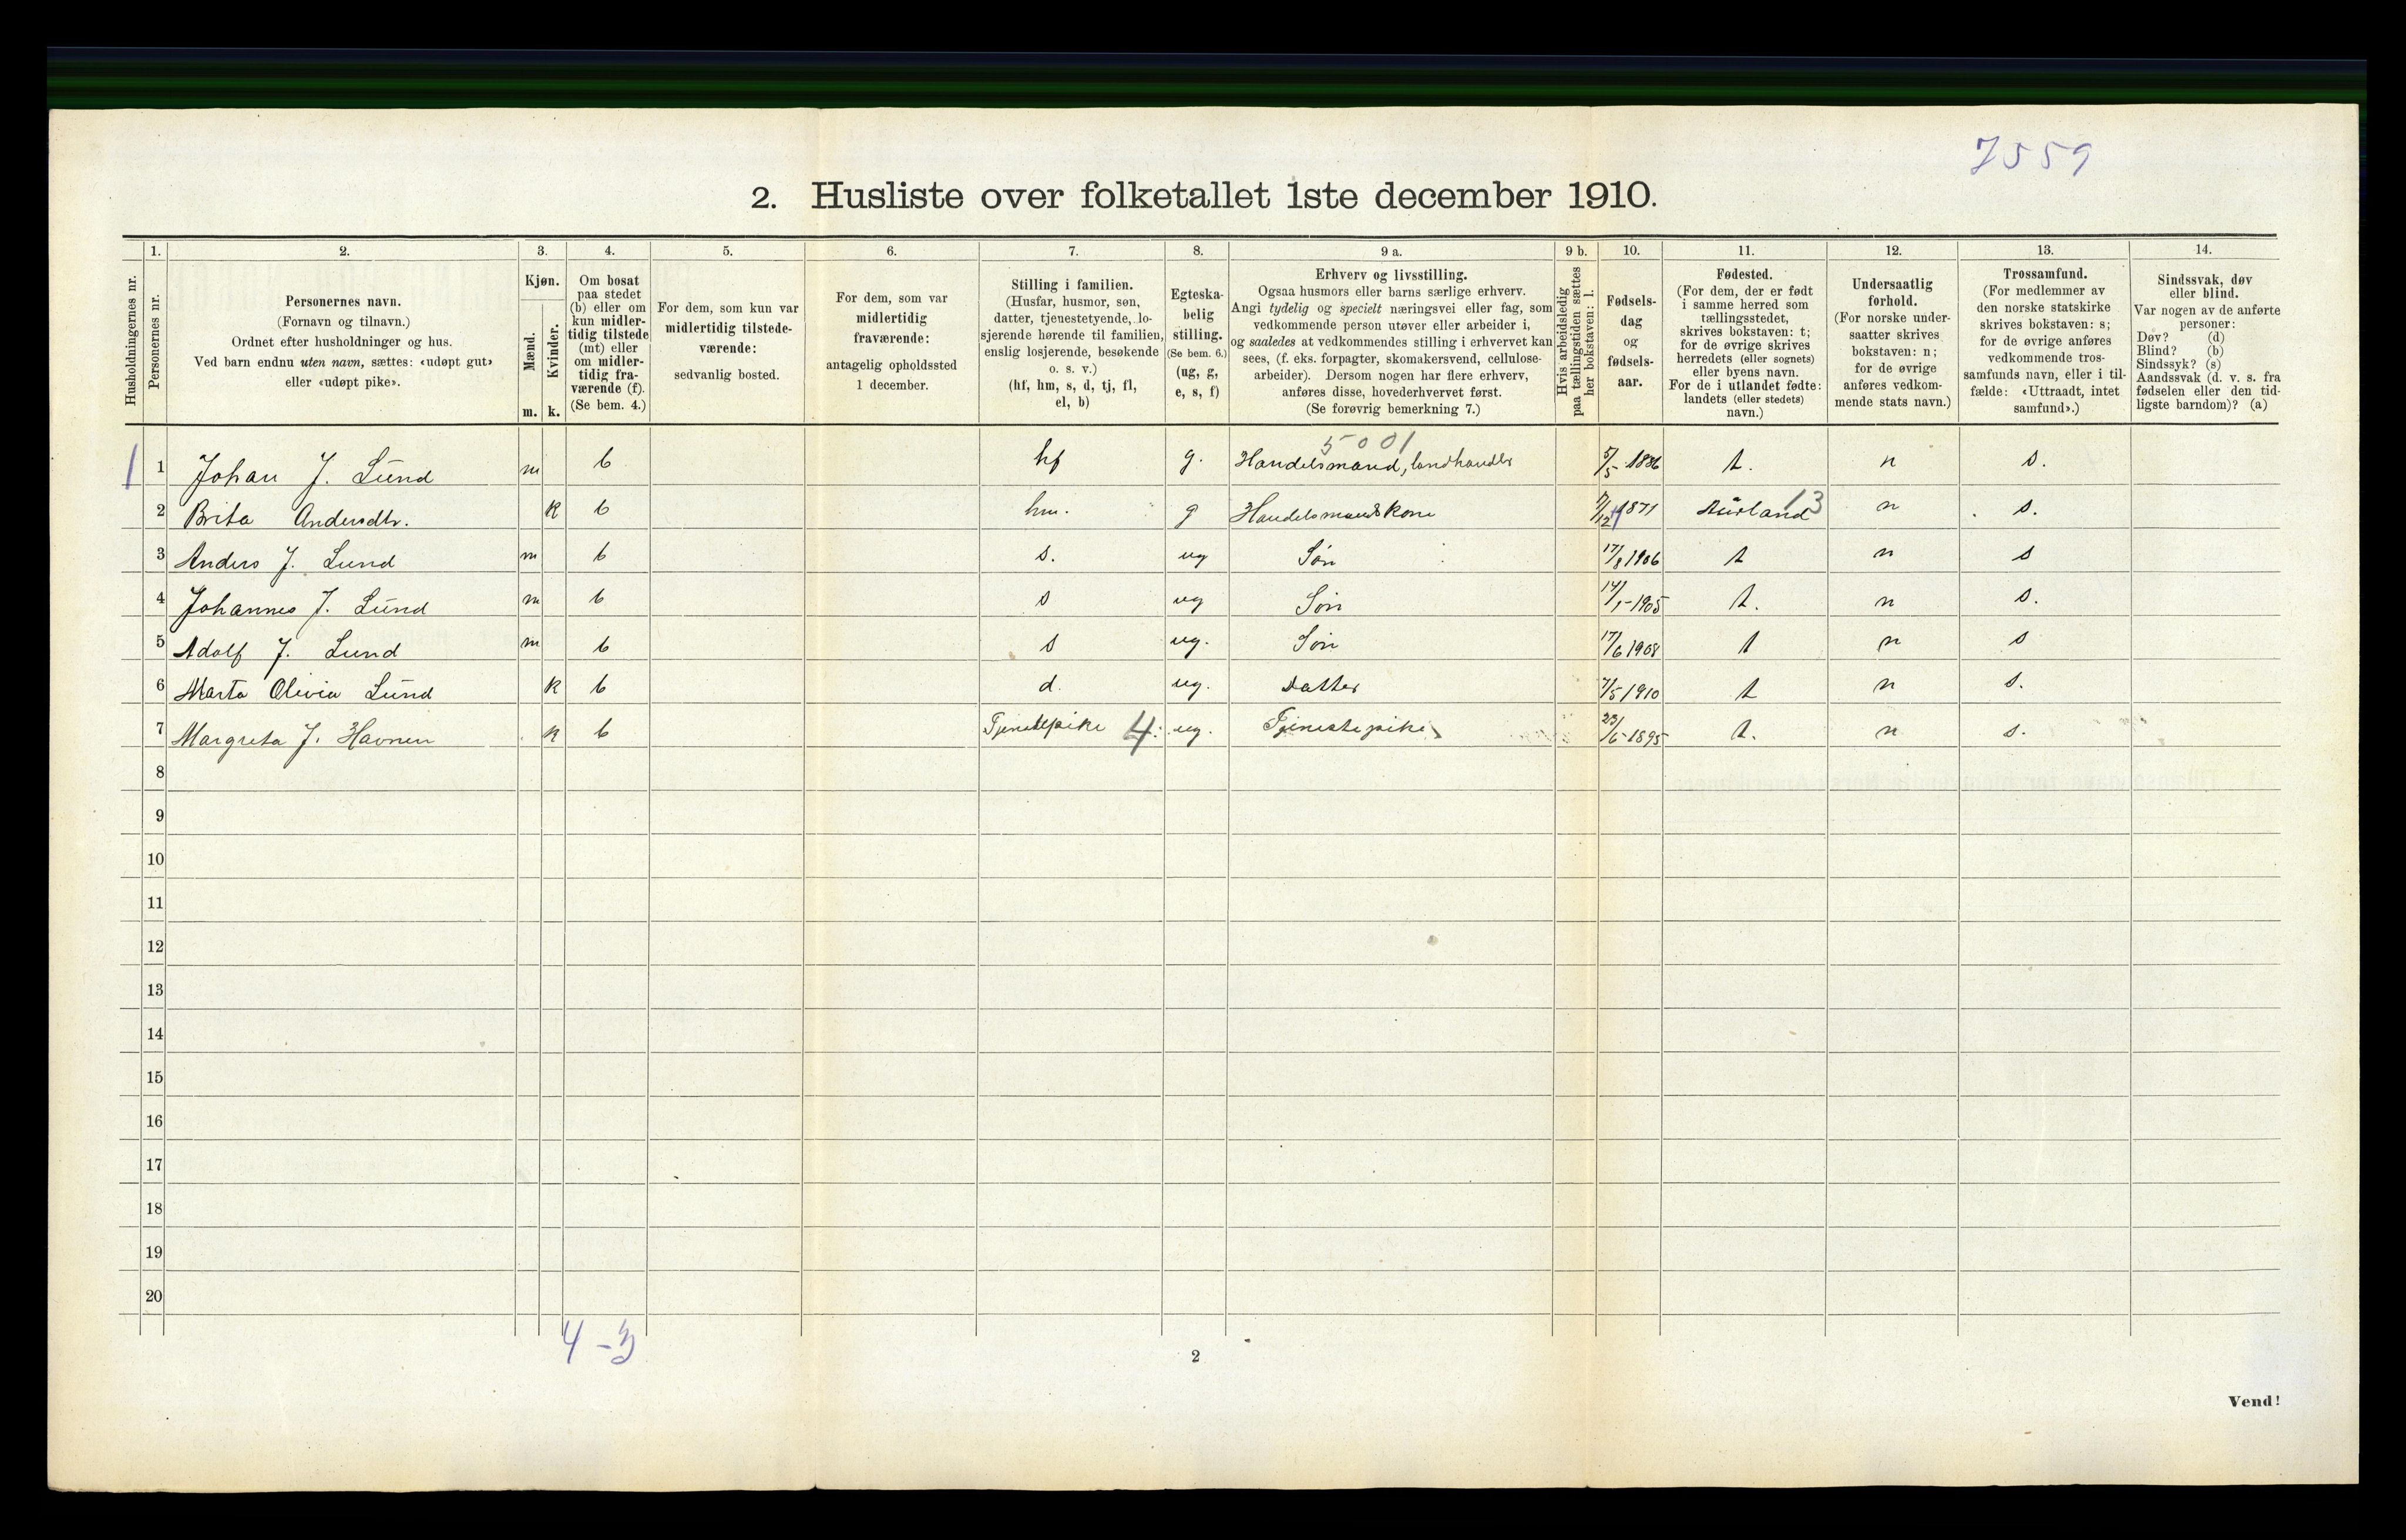 7559
2. Husliste over folketallet 1ste december 1910.
1. 2. 3. 4. 5. 6. 7. 8. 9 a. 9 b. 10. 11. 12. 13. 14.
Husholdningernes nr.
Personernes nr.
Personernes navn.
(Fornavn og tilnavn.)
Ordnet efter husholdninger og hus.
Ved barn endnu uten navn, sættes: «udøpt gut»
eller «udøpt pike».
Kjøn.
Mænd.
Kvinder.
m. k.
Om bosat
paa stedet
(b) eller om
kun midler-
tidig tilstede
(mt) eller
om midler-
tidig fra-
værende (f).
(Se bem. 4.)
For dem, som kun var
midlertidig tilstede-
værende:
sedvanlig bosted.
For dem, som var
midlertidig
fraværende:
antagelig opholdssted
1 december.
Stilling i familien.
(Husfar, husmor, søn,
datter, tjenestetyende, lo-
sjerende hørende til familien,
enslig losjerende, besøkende
o. s. v.)
(hf, hm, s, d, tj, fl,
el, b)
Egteska-
belig
stilling.
(Se bem. 6.)
(ug, g,
e, s, f)
Erhverv og livsstilling.
Ogsaa husmors eller barns særlige erhverv.
Angi tydelig og specielt næringsvei eller fag, som
vedkommende person utøver eller arbeider i,
og saaledes at vedkommendes stilling i erhvervet kan
sees, (f. eks. forpagter, skomakersvend, cellulose-
arbeider). Dersom nogen har flere erhverv,
anføres disse, hovederhvervet først.
(Se forøvrig bemerkning 7.)
Hvis arbeidsledig
paa tællingstiden sættes
her bokstaven: l.
Fødsels-
dag
og
fødsels-
aar.
Fødested.
(For dem, der er født
i samme herred som
tællingsstedet,
skrives bokstaven: t;
for de øvrige skrives
herredets (eller sognets)
eller byens navn.
For de i utlandet fødte:
landets (eller stedets)
navn.)
Undersaatlig
forhold.
(For norske under-
saatter skrives
bokstaven: n;
for de øvrige
anføres vedkom-
mende stats navn.)
Trossamfund.
(For medlemmer av
den norske statskirke
skrives bokstaven: s;
for de øvrige anføres
vedkommende tros-
samfunds navn, eller i til-
fælde: «Uttraadt, intet
samfund».)
Sindssvak, døv
eller blind.
Var nogen av de anførte
personer:
Døv? (d)
Blind? (b)
Sindssyk? (s)
Aandssvak (d. v. s. fra
fødselen eller den tid-
ligste barndom)? (a)
5001
1 1 Johan J. Lund m b hf g. Handelsmand, landhandler 5/5 1886 t. n s.
2 Brita Andersdtr. k b hm. g Handelsmandskone 1871 Aurland 13 n s.
3 Anders J. Lund m b s. ug Søn 17/8 1906 t n s
4 Johannes J. Lund m b s ug Søn 14/1-1905 t. n s.
5 Adolf J. Lund m b s ug. Søn 17/6 1908 t n s
6 Marta Olivia Lund k b d. ug. Datter 7/5 1910 t n s.
7 Margreta J. Havnen k b Tjenestepike 4 ug. Tjenestepike 23/6-1895 t. n s.
8
9
10
11
12
13
14
15
16
17
18
19
20
4-3
2
Vend!